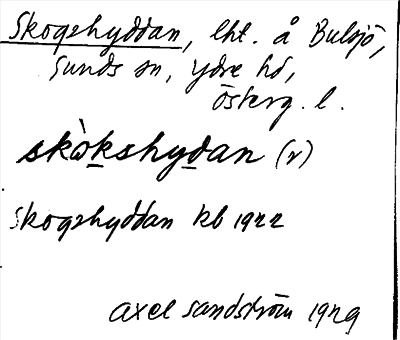 Skogshyddan, lht. å Bulsjö,
Sunds sn, Ydre hd,
Österg. l.
skò̱kshyḏan (r)
Skogshyddan kb 1922
Axel Sandström 1929